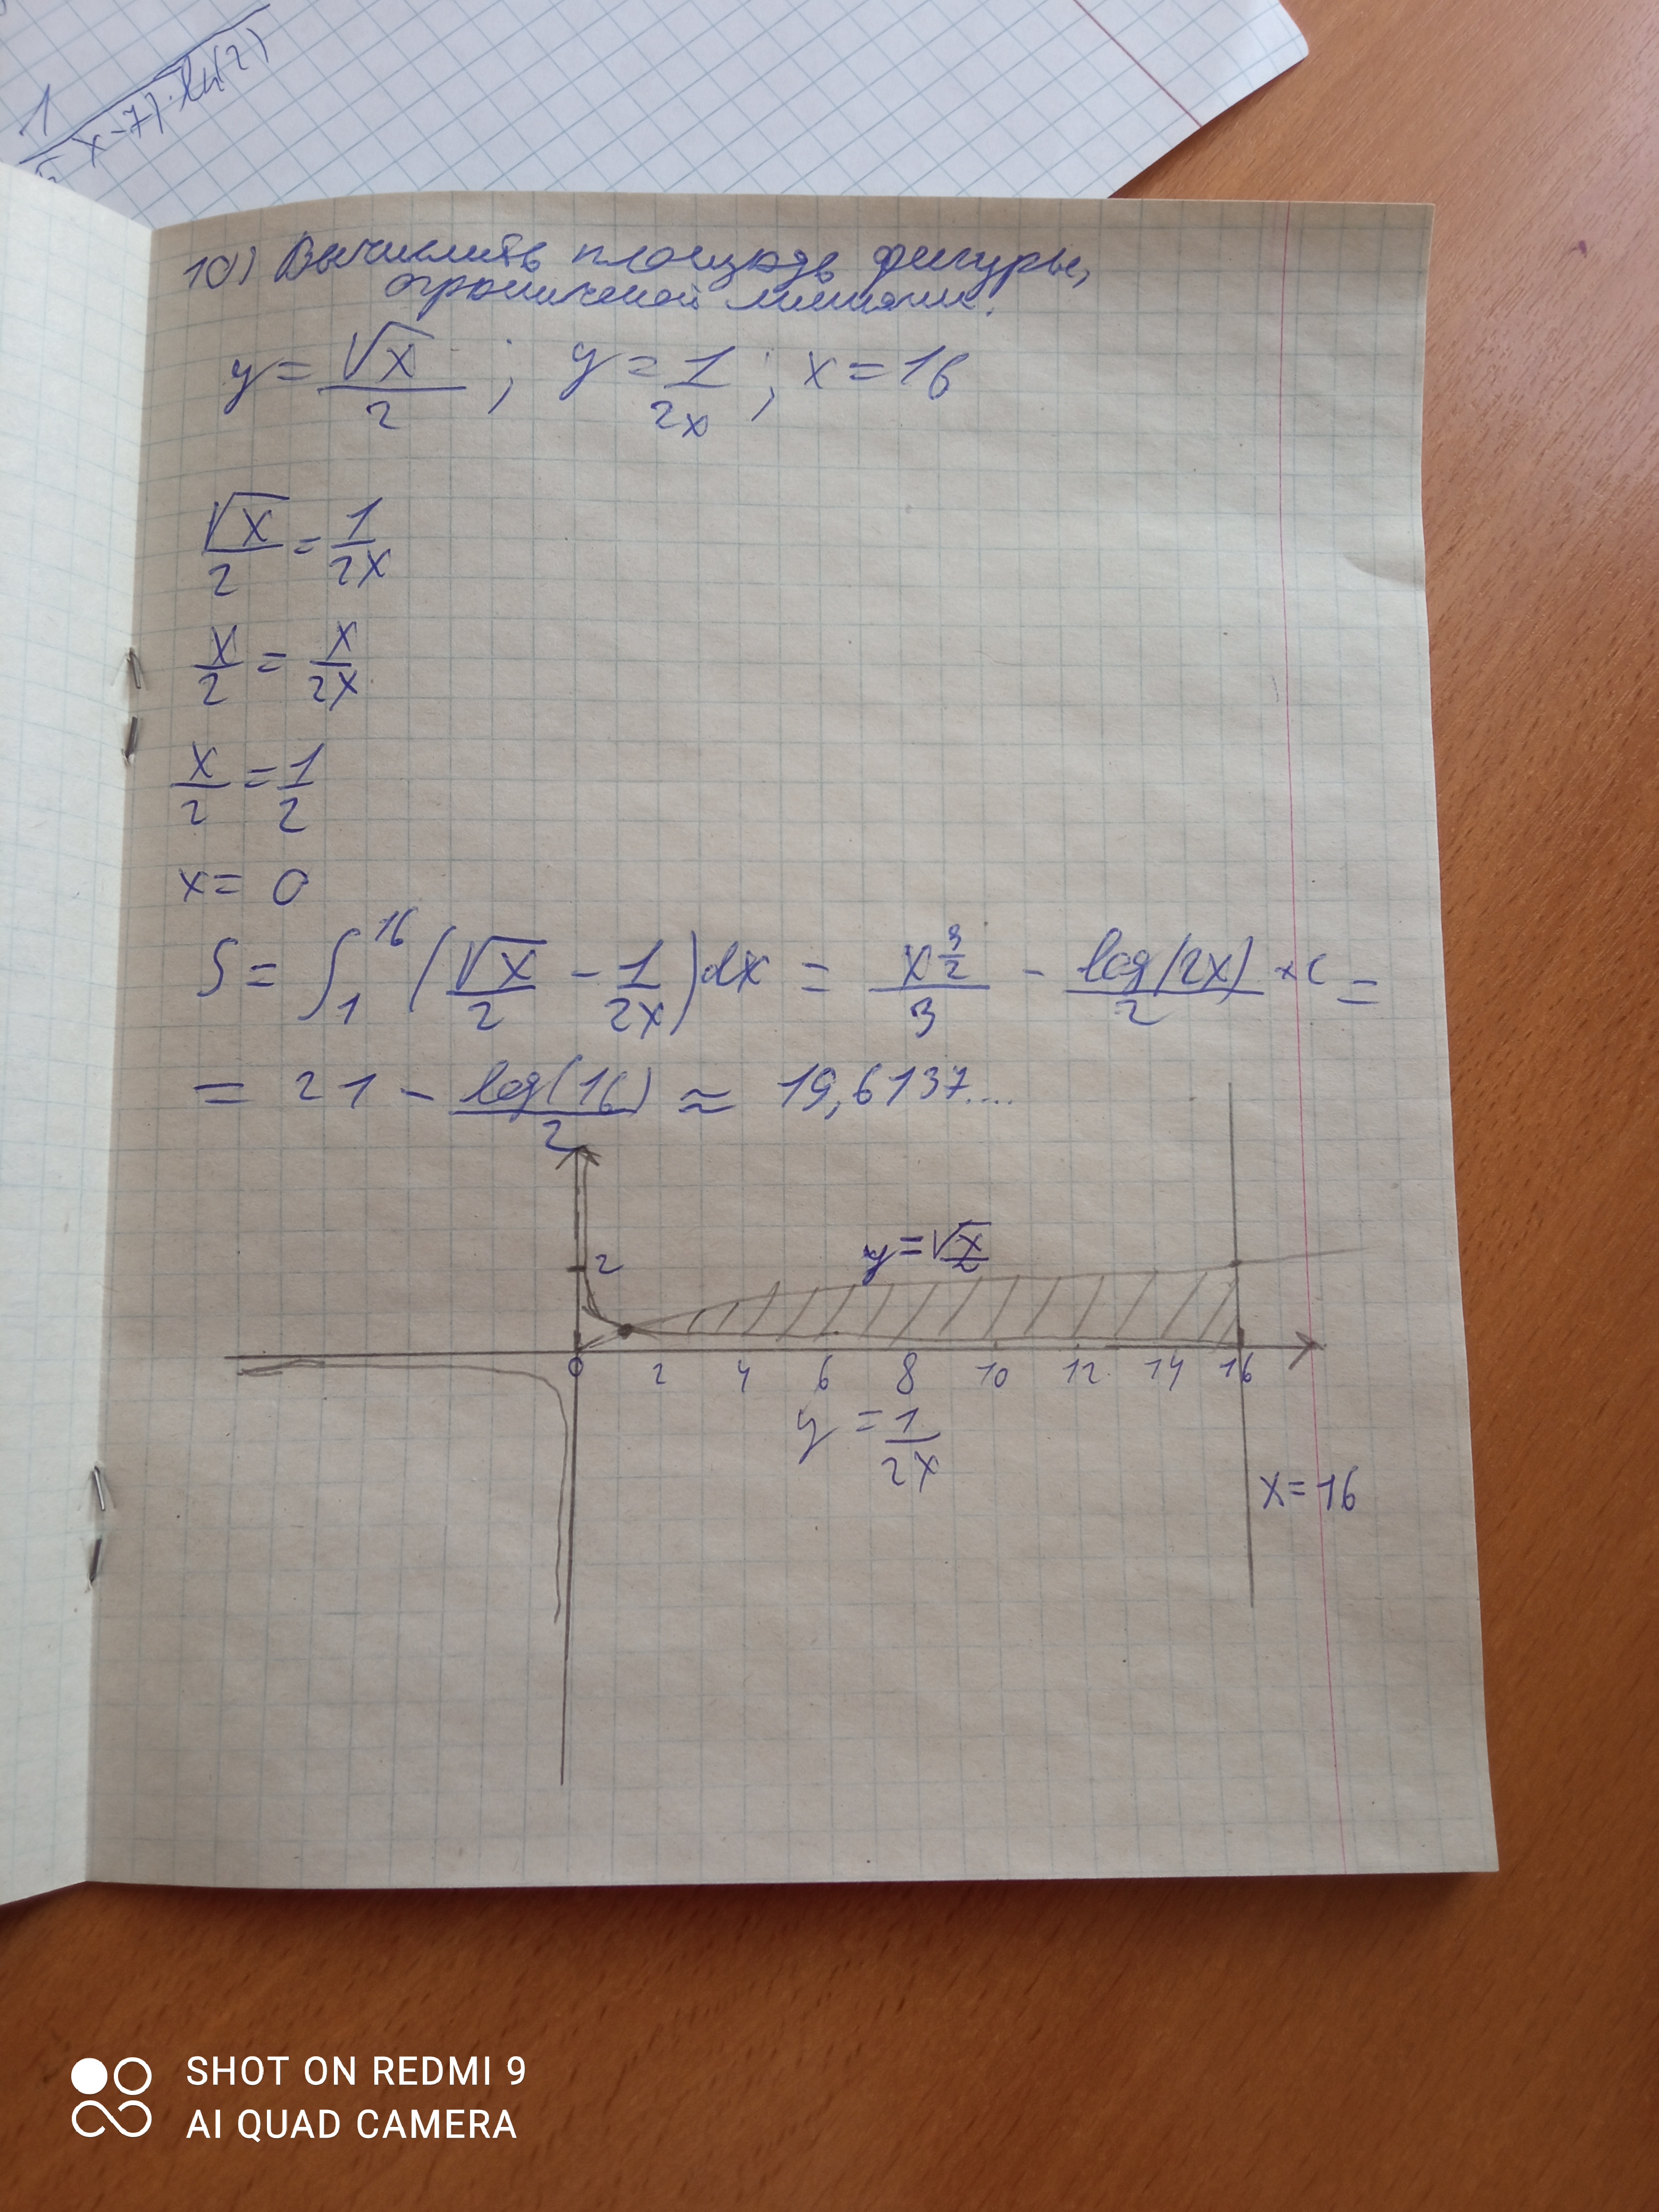 1
x-7)·ln(2)
10) Вычислить площадь фигуры,
ограниченой линиями.
y = √x/2 ; y = 1/2x ; x = 16
√x/2 = 1/2x
x/2 = x/2x
x/2 = 1/2
x = 0
S = ∫₁¹⁶ (√x/2 - 1/2x) dx = x^(3/2)/3 - log(2x)/2 + c =
= 21 - log(16)/2 ≈ 19,6137....
y = √x/2
2
0 2 4 6 8 10 12 14 16
y = 1/2x
x = 16
SHOT ON REDMI 9
AI QUAD CAMERA